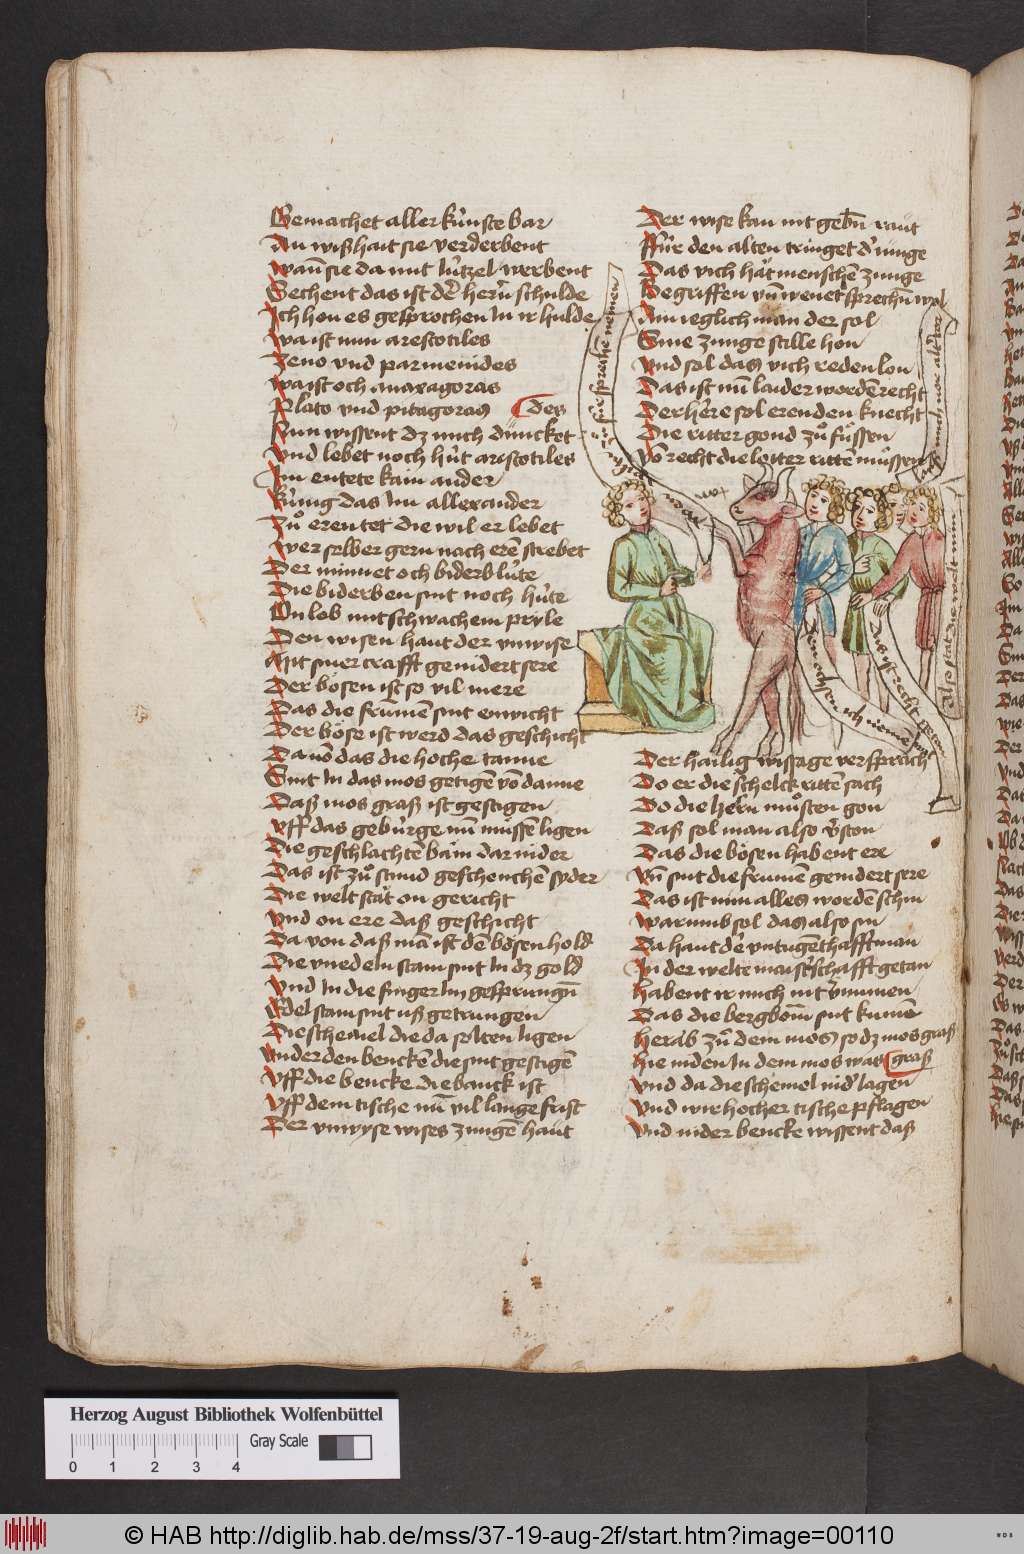 Gemachet aller kúnste bar
An wißhait sie verderbent
wan̄ sie da mit lútzel werbent
Sechent das ist der herñ schulde
Ich hon es gesprochen In ir hulde
wa ist nun arestotiles
Zeno vnd parmemides
wa ist och anaxagoras
Plato vnd pitagoras des
Nun wissent dz mich duncket
vnd lebet noch hút aristotiles
Im entete kain ander
kúnig das Im allexander
Zů eren tet die wil er lebet
wer selber gern nach erē strebet
Der minnet och biderb lúte
Die biderben sint noch húte
On lob mit schwachem pryse
Den wisen haut der vnwise
Mit siner crafft genidert sere
Der bósen ist so vil mere
Das die frumē sint enwicht
Der böse ist werd das geschicht
Da vō das die hoche tanne
Sint In das mos getigē vō danne
Daß mos graß ist gestigen
vff das gebúrge nū mússē ligen
Die geschlachtē bäm dar nider
Das ist zů stund geschenchē syder
Die welt stät on gericht
vnd on ere daß geschicht
Da von daß mā ist dē bösen hold
Die vnedeln stain sint In dz gold
vnd In die finger lin gesprungē
Edel stain sint uß getrungen
Die schemel die da solten ligen
vnder den benckē die sint gestigē
vff die bencke die banck ist
vff dem tische nū vil lange frist
Der vnwyse wises zungē haut
Der wise kan nit gebn̄ raut
Fúr den alten tringet d' iunge
Das vich hät menschē zunge
Begriffen vn̄ wenet sprechn̄ wol
Ain ieglich man der sol
Sine zunge stille hon
vnd sol das vich reden lon
Das ist nū laider wordē recht
Der here sol eren den knecht
Die ritter gond zů fússen
vō recht die lotter rittē mússen
Also stat die welt nun
Das ist recht
Den ochsen ich neme
Der hailig wissage versprach
Do er die schelck rittē sach
Vo die hern̄ můsten gon
Daß sol man also v̄ston
Das die bösen habent ere
vn̄ sint die frumē genidert sere
Das ist nun alles wordē schin
warumb sol das also sin
Da haut d'e vntugēthafft man
In der welte maist'schafft getan
habent ir mich nit v̄numen
Das die bergbom̄ sint kumē
herab zů dem mos so dz mos graß
hie niden In dem mos was graß
vnd da die schemel nid' lagen
vnd wir hocher tische pflagen
vnd nider bencke wissent daß
Herzog August Bibliothek Wolfenbüttel
Gray Scale
0 1 2 3 4
© HAB http://diglib.hab.de/mss/37-19-aug-2f/start.htm?image=00110